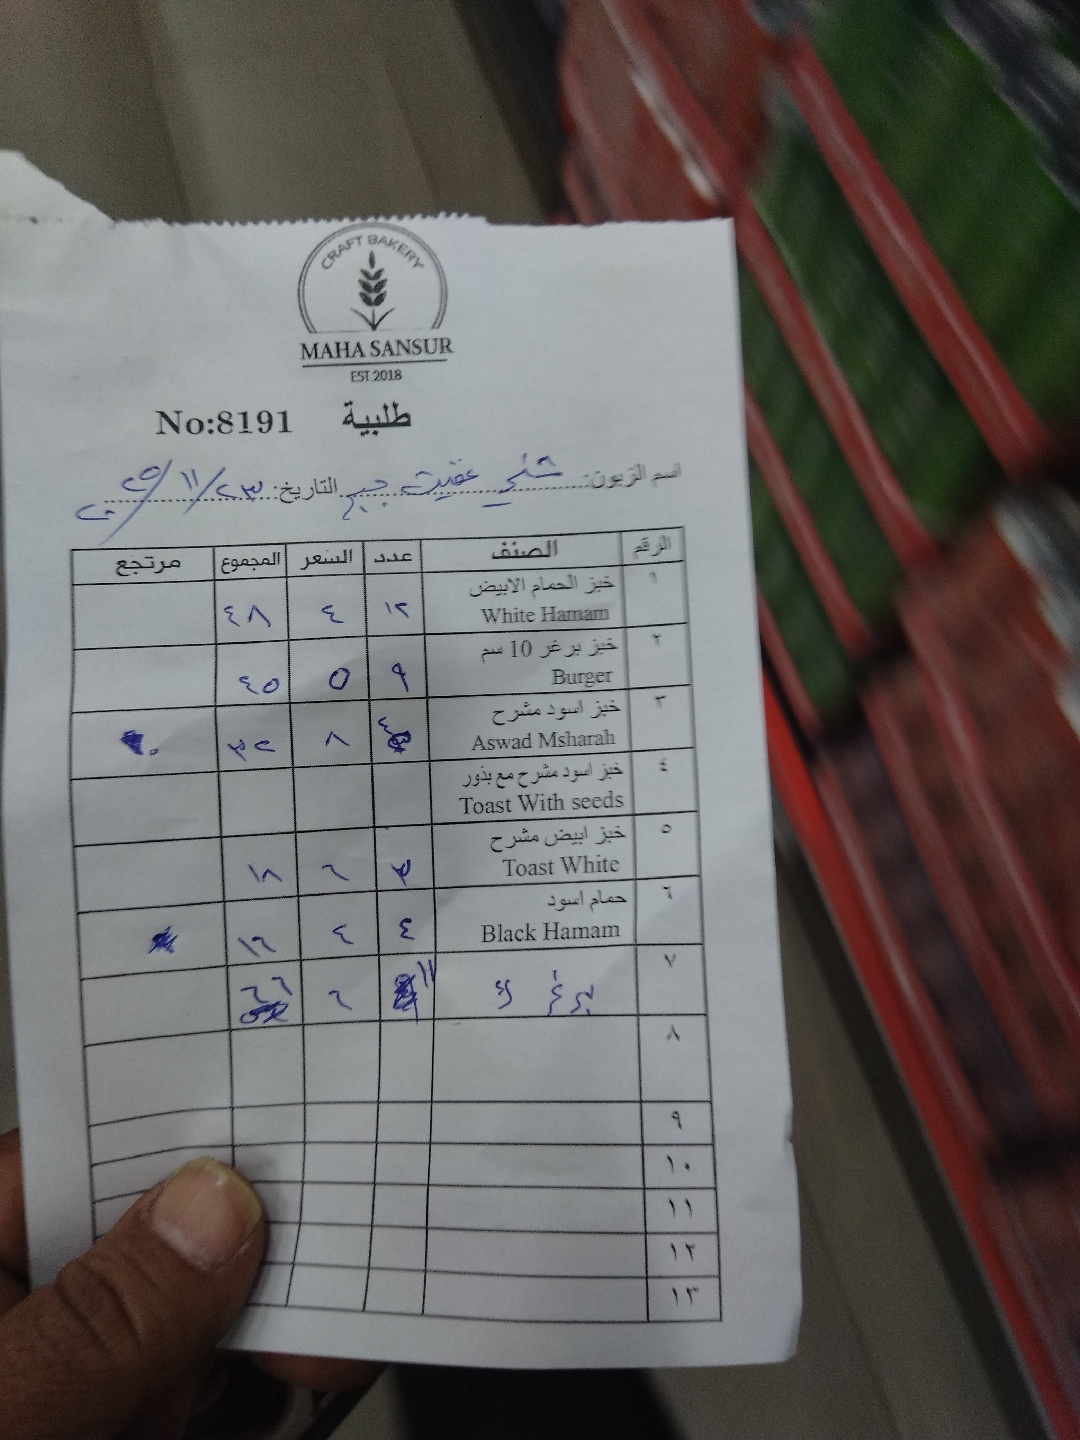 CRAFT BAKERY
MAHA SANSUR
EST 2018
No:8191 طلبية
اسم الزبون: شلي جبع التاريخ: ٢٣/١١/٢٠٢٥
الرقم الصنف عدد السعر المجموع مرتجع
١ خبز الحمام الابيض White Hamam ١٢ ٤ ٤٨
٢ خبز برغر 10 سم Burger ٩ ٥ ٤٥
٣ خبز اسود مشرح Aswad Msharah ٤ ٨ ٣٢
٤ خبز اسود مشرح مع بذور Toast With seeds
٥ خبز ابيض مشرح Toast White ٣ ٦ ١٨
٦ حمام اسود Black Hamam ٤ ٤ ١٦
٧ برغر ١١ ٦ ٦٦
٨
٩
١٠
١١
١٢
١٣